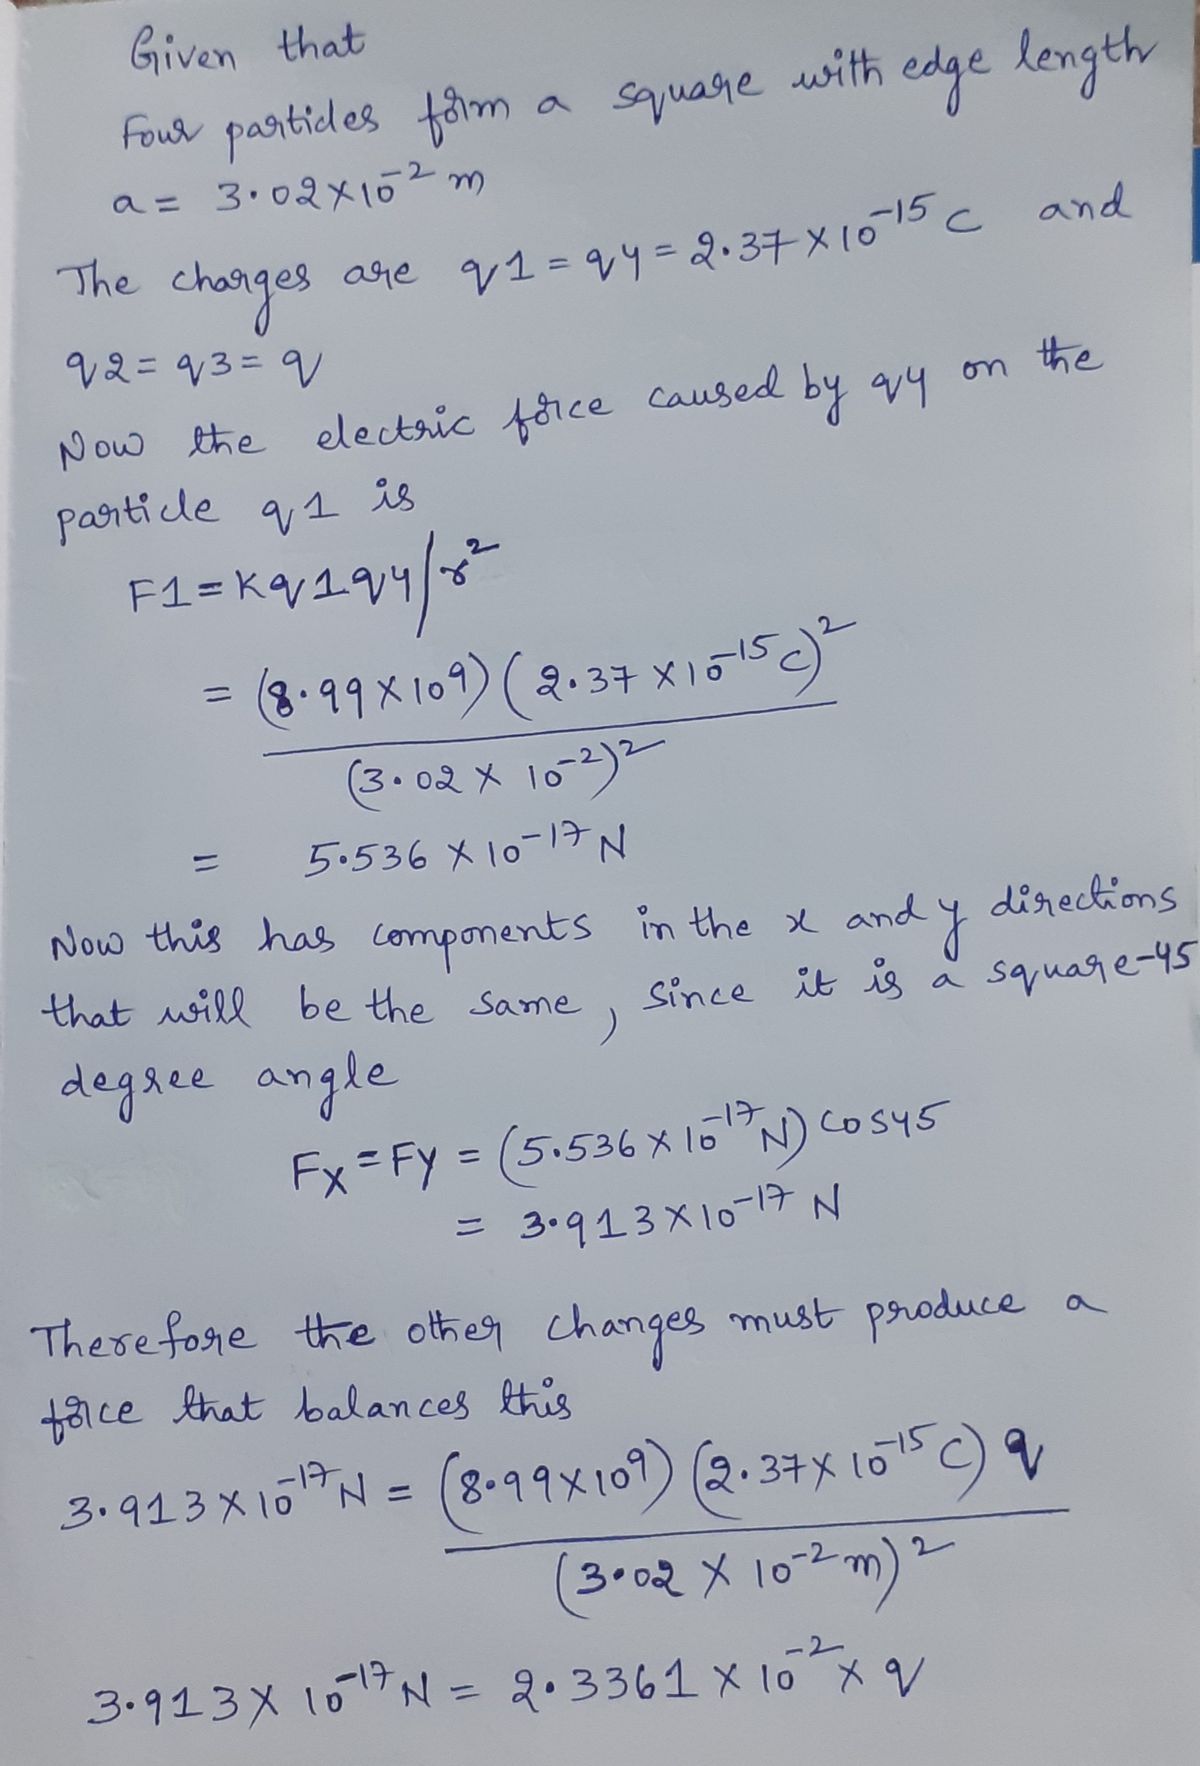 Given that
Four particles form a square with edge length
a = 3.02 × 10⁻² m
The charges are q1 = q4 = 2.37 × 10⁻¹⁵ C and
q2 = q3 = q
Now the electric force caused by q4 on the
particle q1 is
F1 = Kq1q4/r²
= (8.99 × 10⁹) (2.37 × 10⁻¹⁵ C)²
(3.02 × 10⁻²)²
= 5.536 × 10⁻¹⁷ N
Now this has components in the x and y directions
that will be the same, since it is a square-45
degree angle
Fx = Fy = (5.536 × 10⁻¹⁷ N) cos45
= 3.913 × 10⁻¹⁷ N
Therefore the other changes must produce a
force that balances this
3.913 × 10⁻¹⁷ N = (8.99 × 10⁹) (2.37 × 10⁻¹⁵ C) q
(3.02 × 10⁻² m)²
3.913 × 10⁻¹⁷ N = 2.3361 × 10⁻² × q